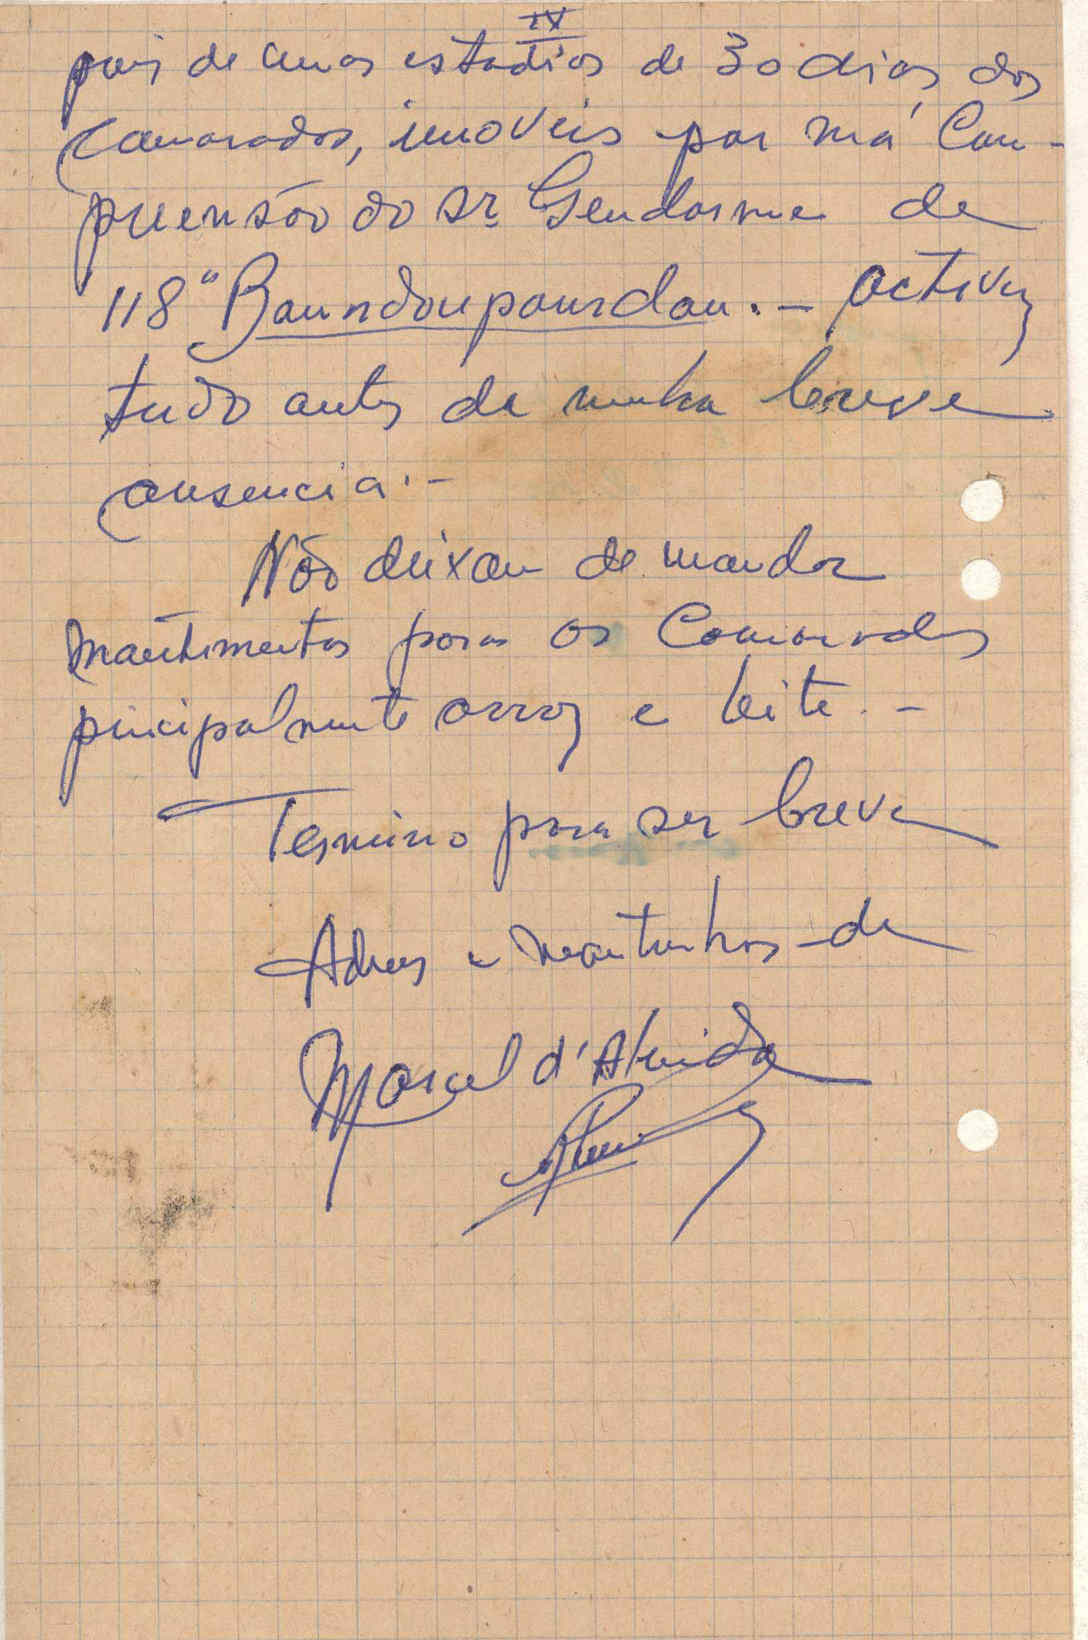 IV
pois de unos estadios de 30 dias dos
Camarados, imoveis por má Com-
preensão do Sr. Gendarme de
118º Baundoupoundou. - activei
tudo antes da minha breve
ausencia. -
Não deixam de mandar
mantimentos para os Camarades
pincipalmente arroz e leite. -
Termino para ser breve
Adeus e mantenhas de
Marcel d'Almeida